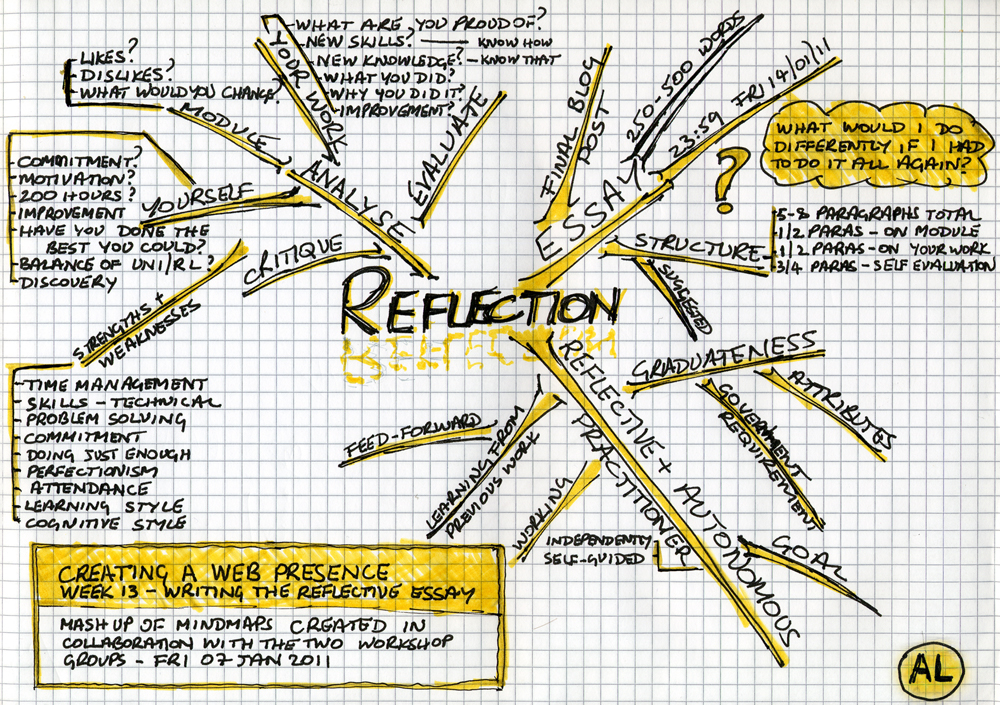 WHAT ARE YOU PROUD OF?
NEW SKILLS? — KNOW HOW
NEW KNOWLEDGE? – KNOW THAT
WHAT YOU DID?
WHY YOU DID IT?
IMPROVEMENT?
YOUR WORK
LIKES?
DISLIKES?
WHAT WOULD YOU CHANGE?
MODULE
ANALYSE
EVALUATE
COMMITMENT?
MOTIVATION?
200 HOURS?
IMPROVEMENT
HAVE YOU DONE THE
BEST YOU COULD?
BALANCE OF UNI/RL?
DISCOVERY
YOURSELF
CRITIQUE
STRENGTHS +
WEAKNESSES
TIME MANAGEMENT
SKILLS – TECHNICAL
PROBLEM SOLVING
COMMITMENT
DOING JUST ENOUGH
PERFECTIONISM
ATTENDANCE
LEARNING STYLE
COGNITIVE STYLE
REFLECTION
FINAL BLOG
POST
ESSAY
250-500 WORDS
23:59 FRI 14/01/11
?
WHAT WOULD I DO
DIFFERENTLY IF I HAD
TO DO IT ALL AGAIN?
STRUCTURE
SUGGESTED
5-8 PARAGRAPHS TOTAL
1/2 PARAS – ON MODULE
1/2 PARAS – ON YOUR WORK
3/4 PARAS – SELF EVALUATION
GRADUATENESS
ATTRIBUTES
GOVERNMENT
REQUIREMENT
REFLECTIVE + AUTONOMOUS
PRACTITIONER
GOAL
FEED-FORWARD
LEARNING FROM
PREVIOUS WORK
WORKING
INDEPENDENTLY
SELF-GUIDED
CREATING A WEB PRESENCE
WEEK 13 – WRITING THE REFLECTIVE ESSAY
MASH UP OF MINDMAPS CREATED IN
COLLABORATION WITH THE TWO WORKSHOP
GROUPS – FRI 07 JAN 2011
AL